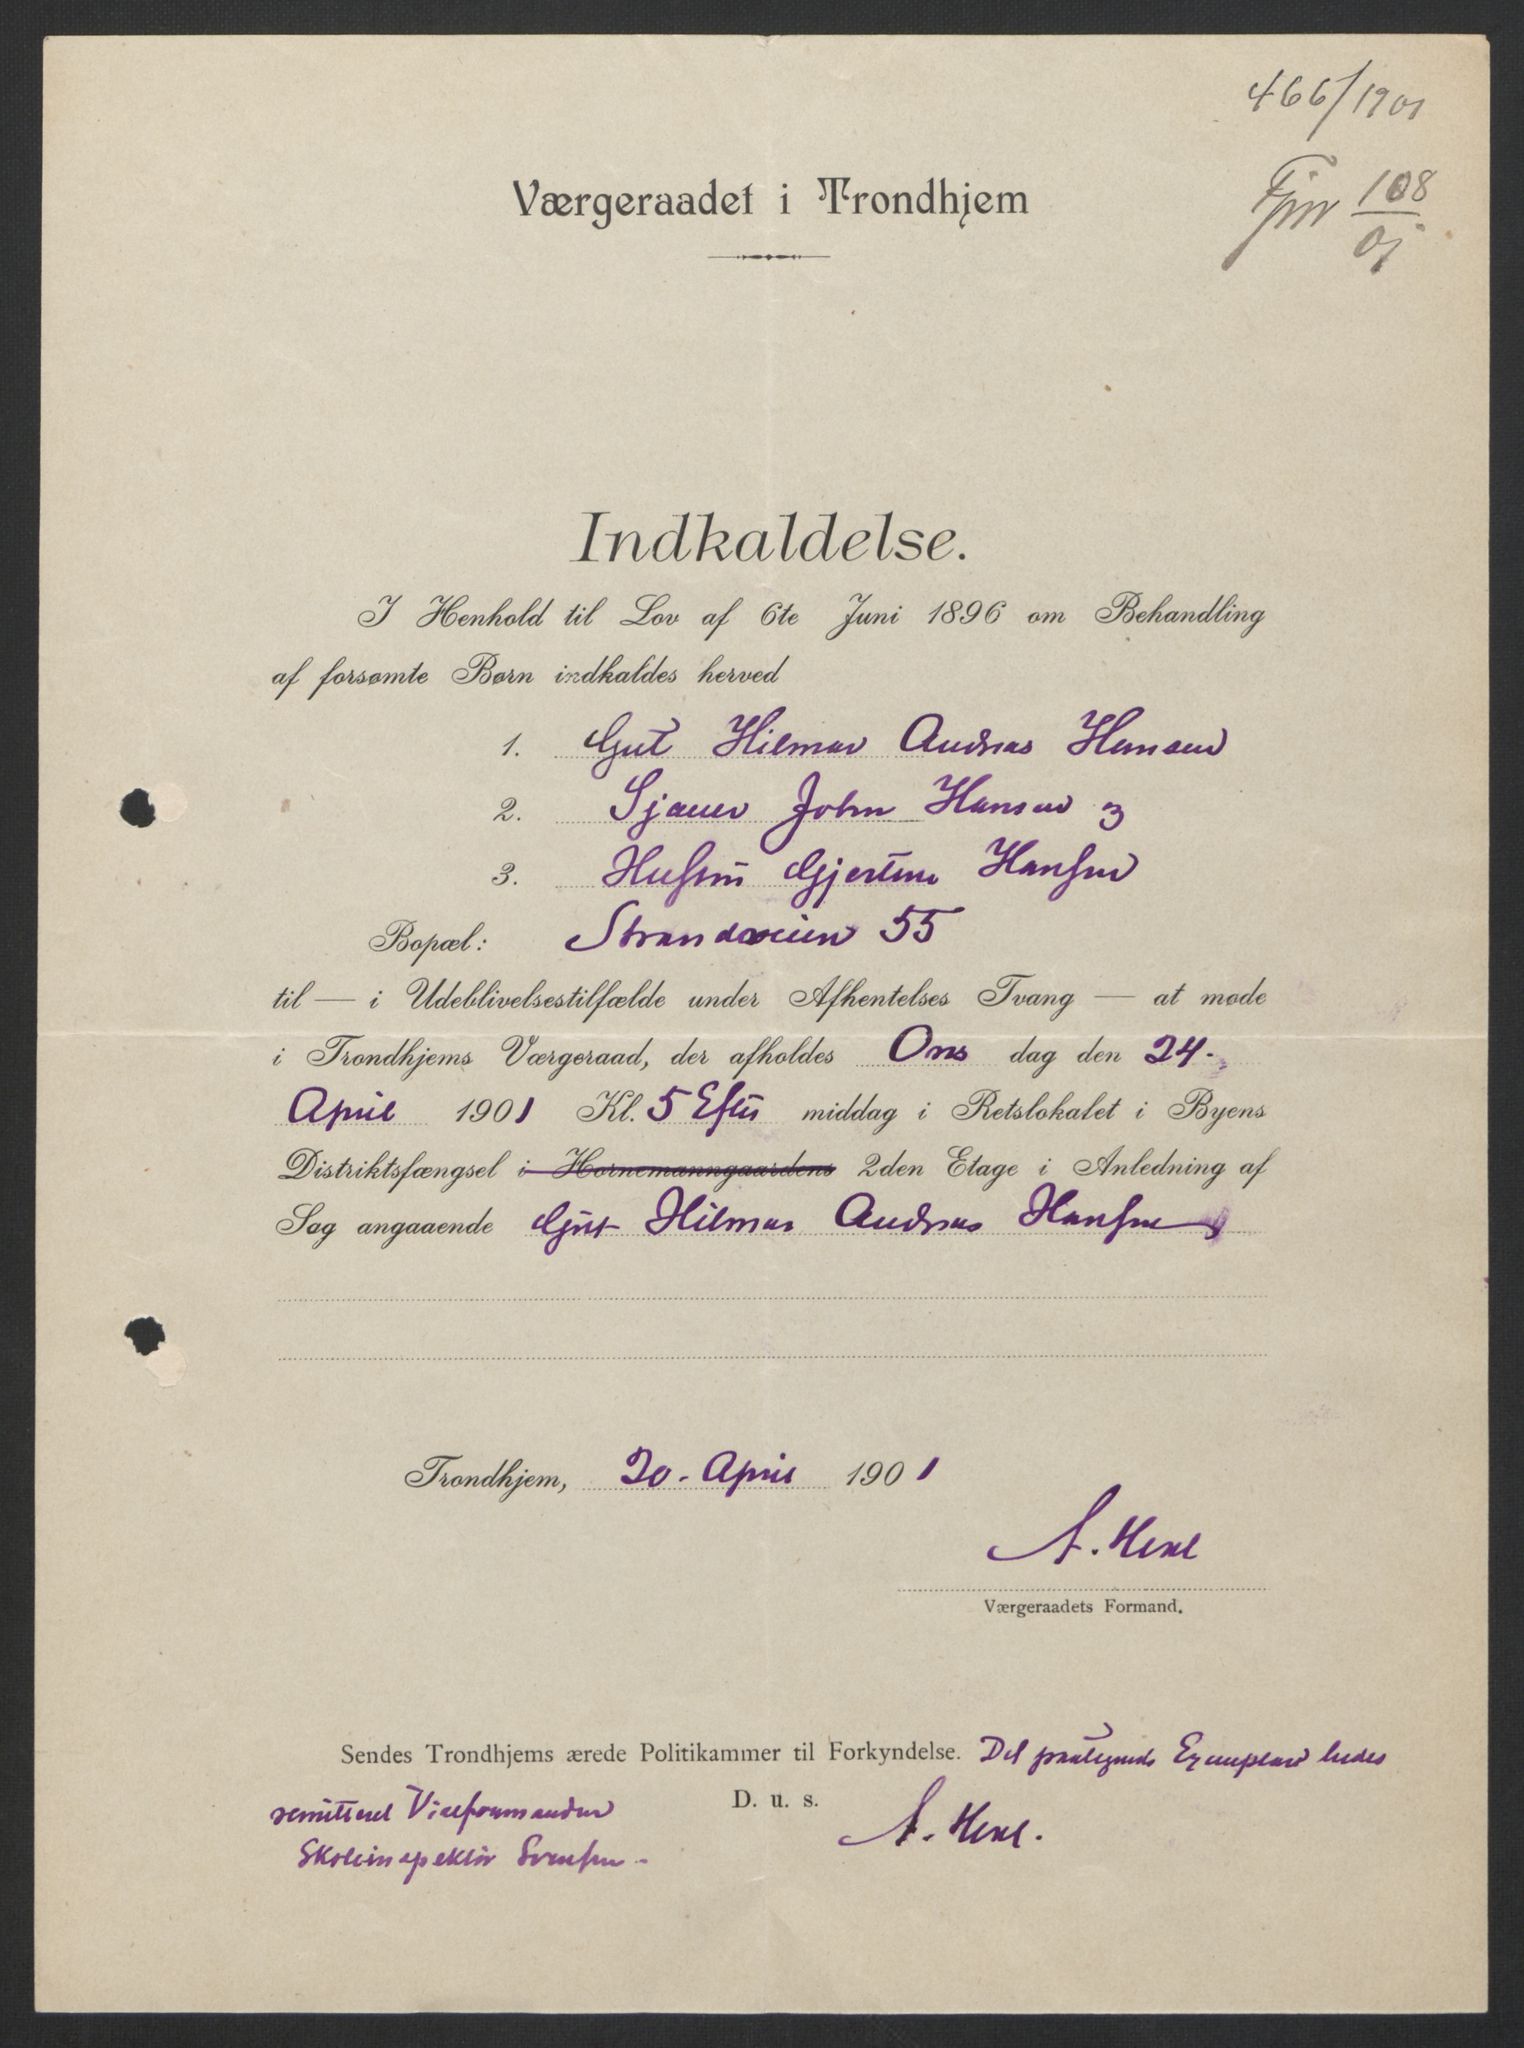 466/1901
108
01
Værgeraadet i Trondhjem
Indkaldelse.
I Henhold til Lov af 6te Juni 1896 om Behandling
af forsømte Børn indkaldes herved
1. Gut Hilmar Andreas Hansen
2. Sjauer John Hansen og
3. Hustru Gjertine Hansen
Bopæl: Strandveien 55
til — i Udeblivelsestilfælde under Afhentelses Tvang — at møde
i Trondhjems Værgeraad, der afholdes Ons dag den 24.
April 1901 Kl. 5 Efter middag i Retslokalet i Byens
Distriktsfængsel i Hornemanngaardens 2den Etage i Anledning af
Sag angaaende Gut Hilmar Andreas Hansen
Trondhjem, 20. April 1901
A. Hexl
Værgeraadets Formand.
Sendes Trondhjems ærede Politikammer til Forkyndelse. Det paategnede Exemplar bedes
remitteret Viceformanden
D. u. s.
Skoleinspektør Svensen.
A. Hexl.